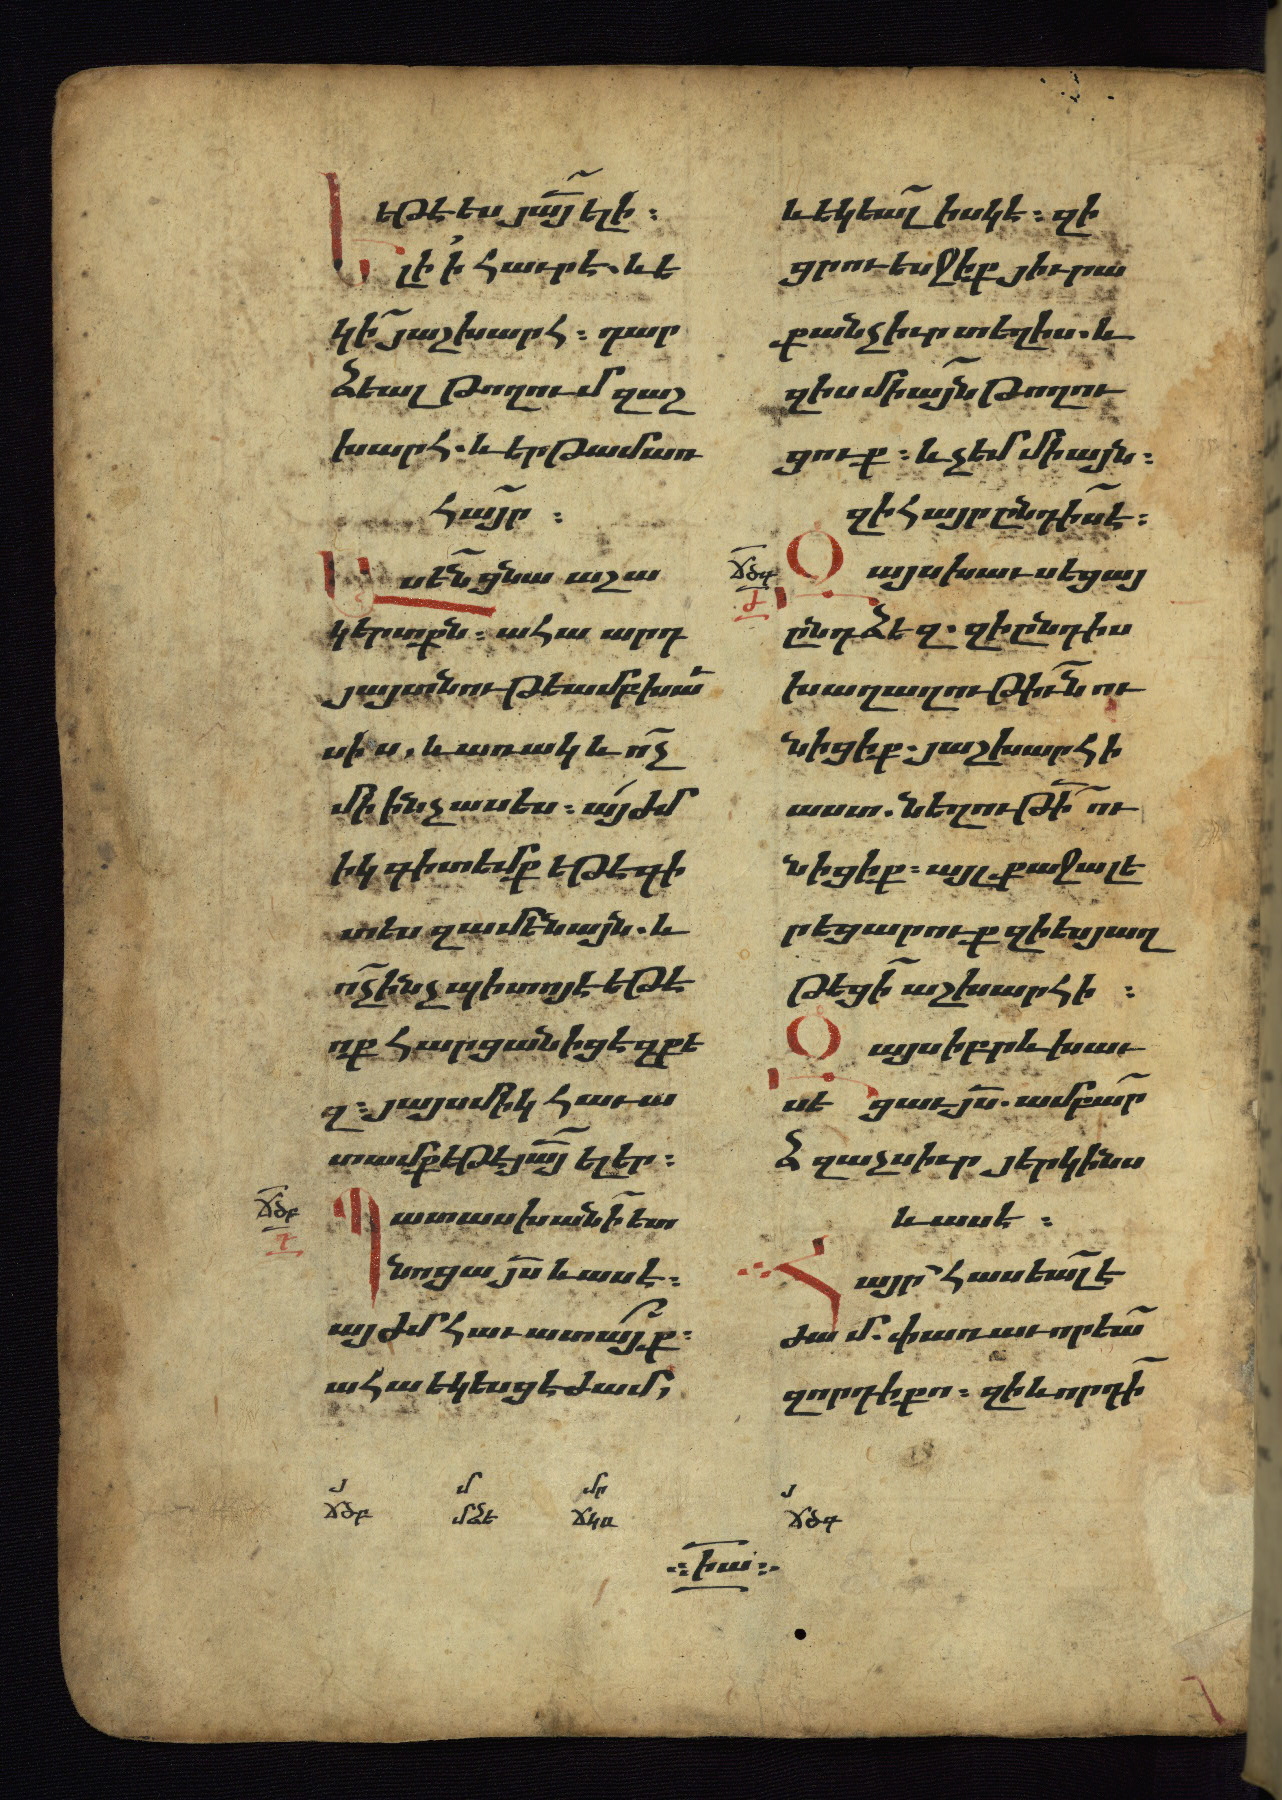 եթէ ես յա՟յ ելի։
Ելի ի հաւրէ. և ե
կի՟ յաշխարհ։ դար
ձեալ թողում զաշ
խարհ. և երթամ առ
հա՟յր ։
Ասե՟ն ցնա աշա
կերտքն։ ահա արդ
յայտնութեամբ խաւ
սիս. և առակ և ո՟չ
մի ինչ ասես։ այժմ
իկ գիտեմք եթէ գի
տես զամենայն. և
ո՟չինչ պիտոյ է եթէ
ոք հարցանիցէ զքե
զ։ յայսմիկ հաւա
տամք եթէ յա՟յ ելեր։
ճծբ
Պատասխանի՟ ետ
նոցա յ՟ս և ասէ։
այժմ հաւատա՟յք։
ահա եկեսցէ ժամ,
և եկեա՟լ իսկ է։ զի
ցրուեսջիք յիւրա
քանչիւր տեղիս. և
զիս միա՟յն թողու
ցուք։ և չեմ միայն։
զի հայր ընդ ի՟ս է։
ճծգ
ժ
Զայս խաւսեցայ
ընդ ձեզ. զի ընդ իս
խաղաղութի՟ւն ու
նիցիք. յաշխարհի
աստ. նեղութի՟ ու
նիցիք։ այլ քաջալե
րեցարուք զի ես յաղ
թեցի՟ աշխարհի ։
Զայս իբրև խաւ
սեցաւ յ՟ս. ամբա՟ր
ձ զաչս իւր յերկինս
և ասէ ։
Հայր՝ հասեա՟լ է
ժամ. փառաւորեա՟
զորդի քո։ զի և որդի՟
յ մ մր յ
ճծբ մձե ճկա ճծգ
խա